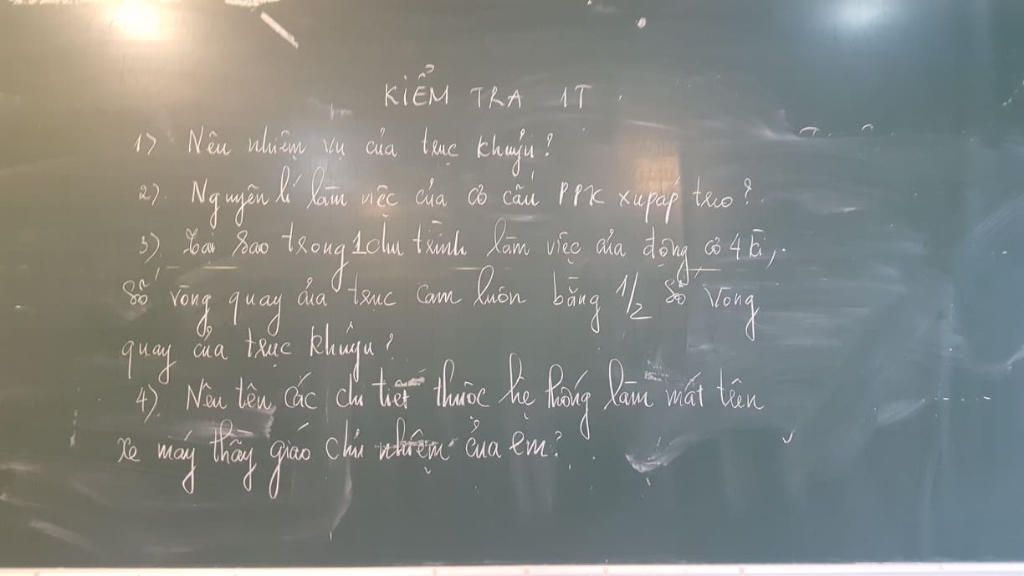 KIỂM TRA 1T.
1) Nêu nhiệm vụ của trục khuỷu?
2). Nguyên lí làm việc của cơ cấu PPK xupap treo?
3) Tại sao trong 1 chu trình làm việc của động cơ 4 kì,
Số vòng quay của trục cam luôn bằng 1/2 số vòng
quay của trục khuỷu?
4). Nêu tên các chi tiết thuộc hệ thống làm mát trên
xe máy thầy giáo chủ nhiệm của em?